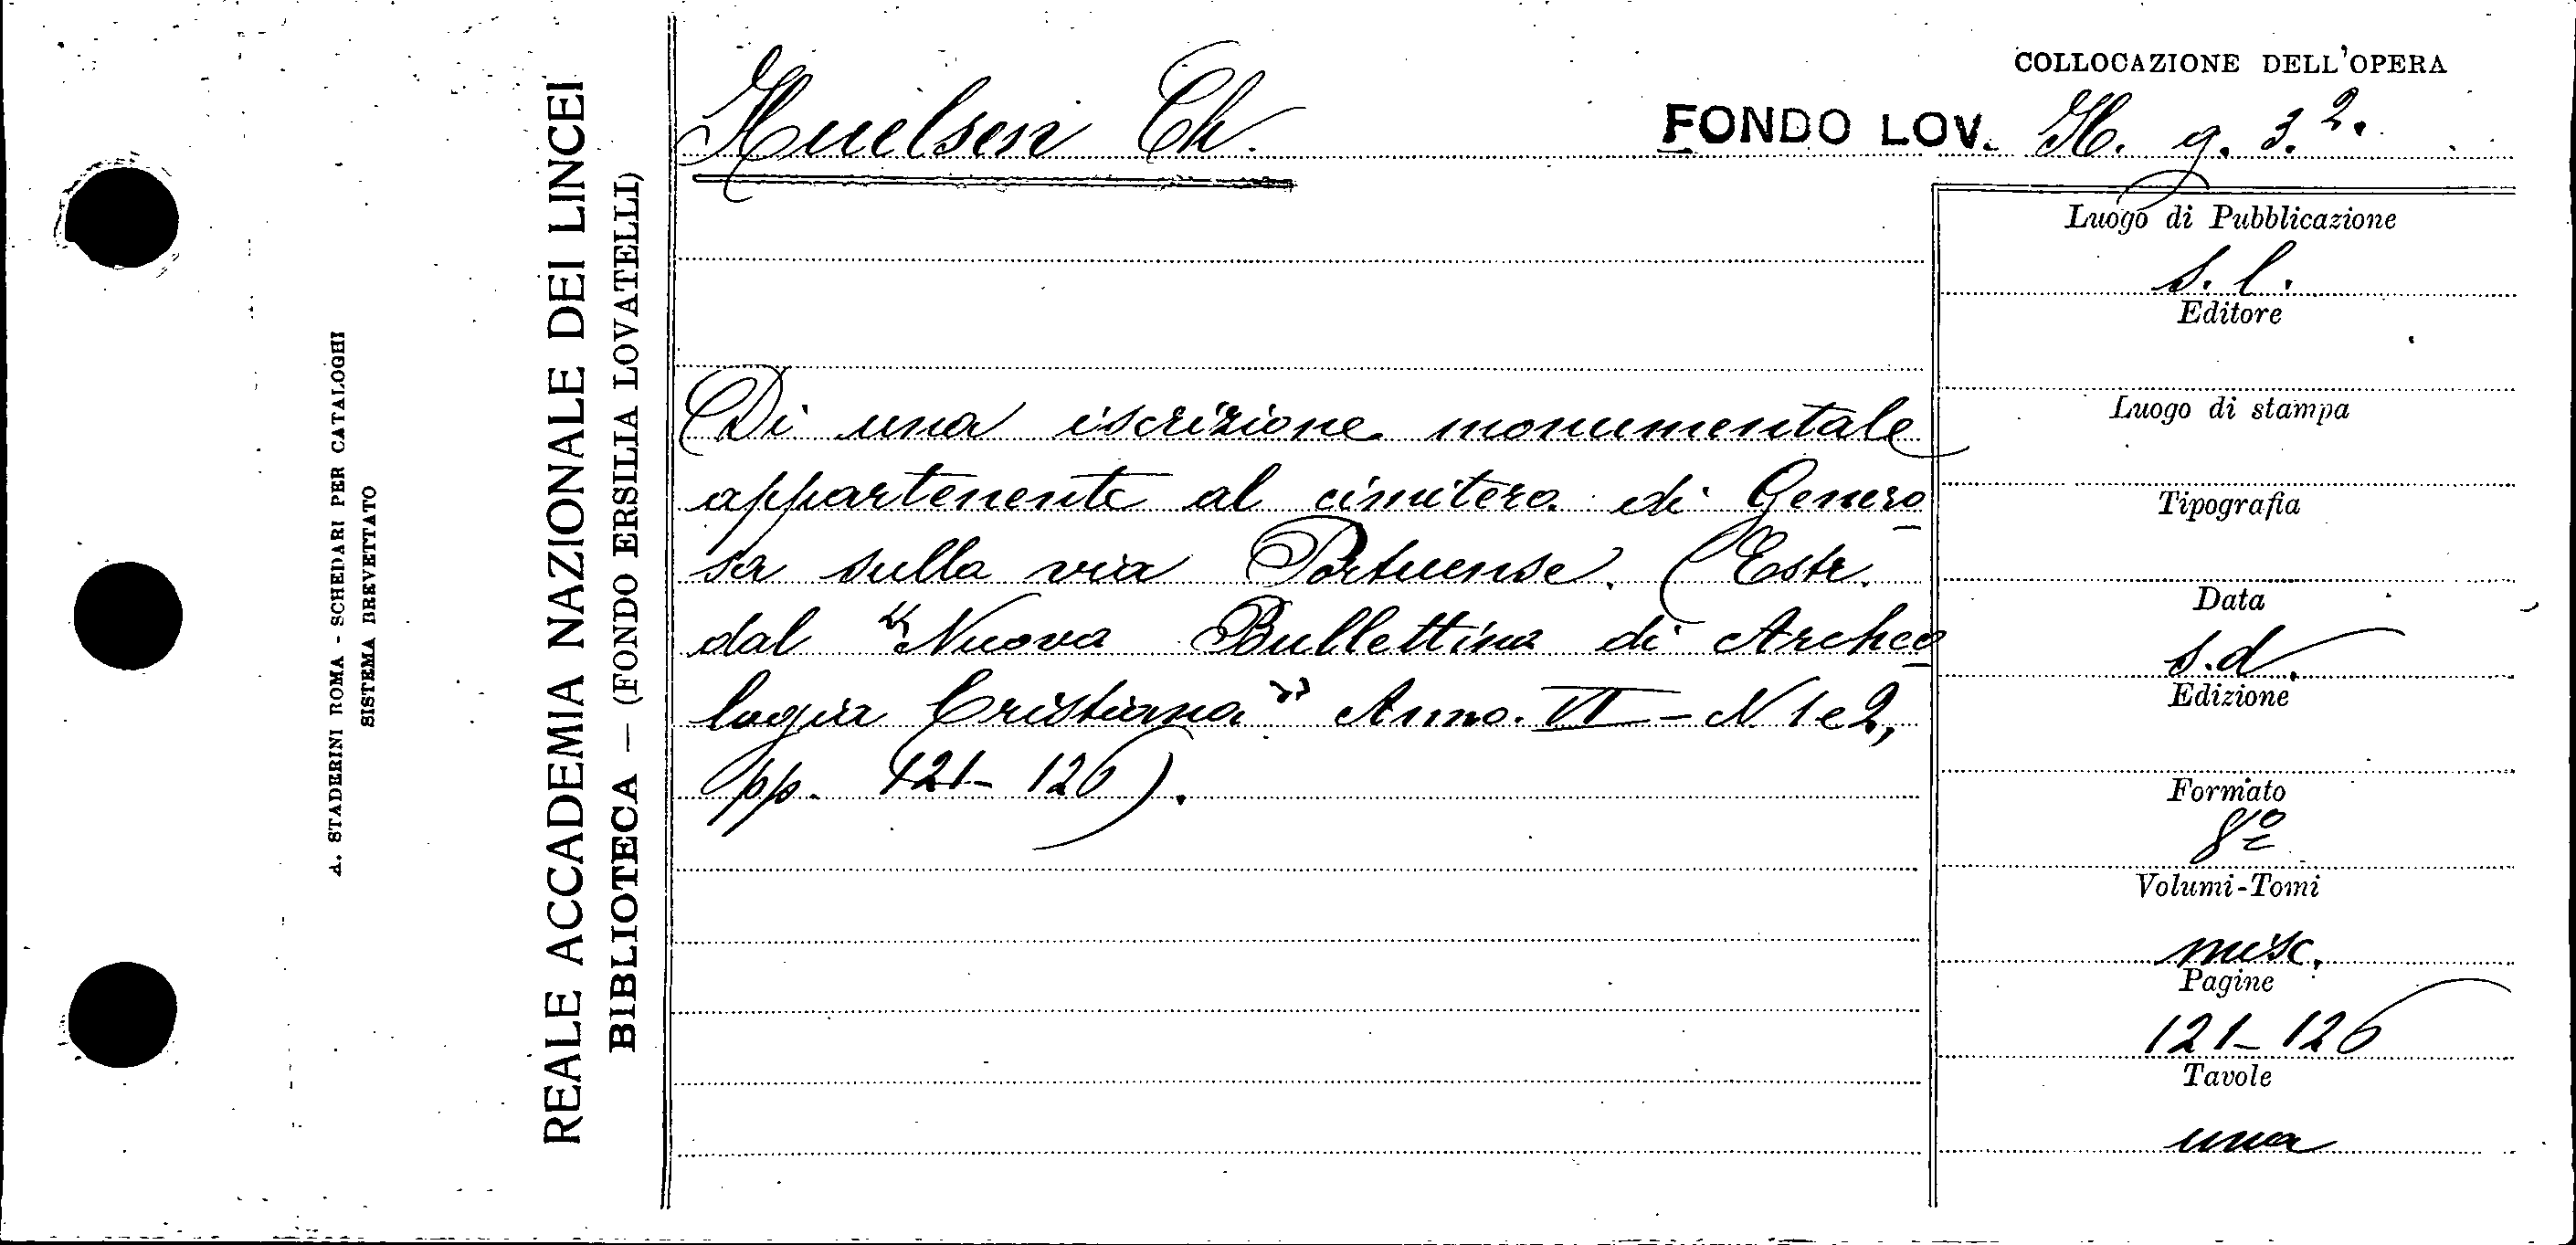 COLLOCAZIONE DELL'OPERA
Huelsen Ch. FONDO LOV. H. g. 3.2.
Di una iscrizione monumentale
appartenente al cimitero di Genero
sa sulla via Portuense. (Estr.
dal "Nuovo Bullettino di Archeo
logia Cristiana" Anno VI - N 1 e 2,
pp. 121-126).
Luogo di Pubblicazione
s. l.
Editore
Luogo di stampa
Tipografia
Data
s.d.
Edizione
Formato
8º
Volumi-Tomi
misc.
Pagine
121-126
Tavole
una
REALE ACCADEMIA NAZIONALE DEI LINCEI
BIBLIOTECA — (FONDO ERSILIA LOVATELLI)
A. STADERINI ROMA - SCHEDARI PER CATALOGHI
SISTEMA BREVETTATO